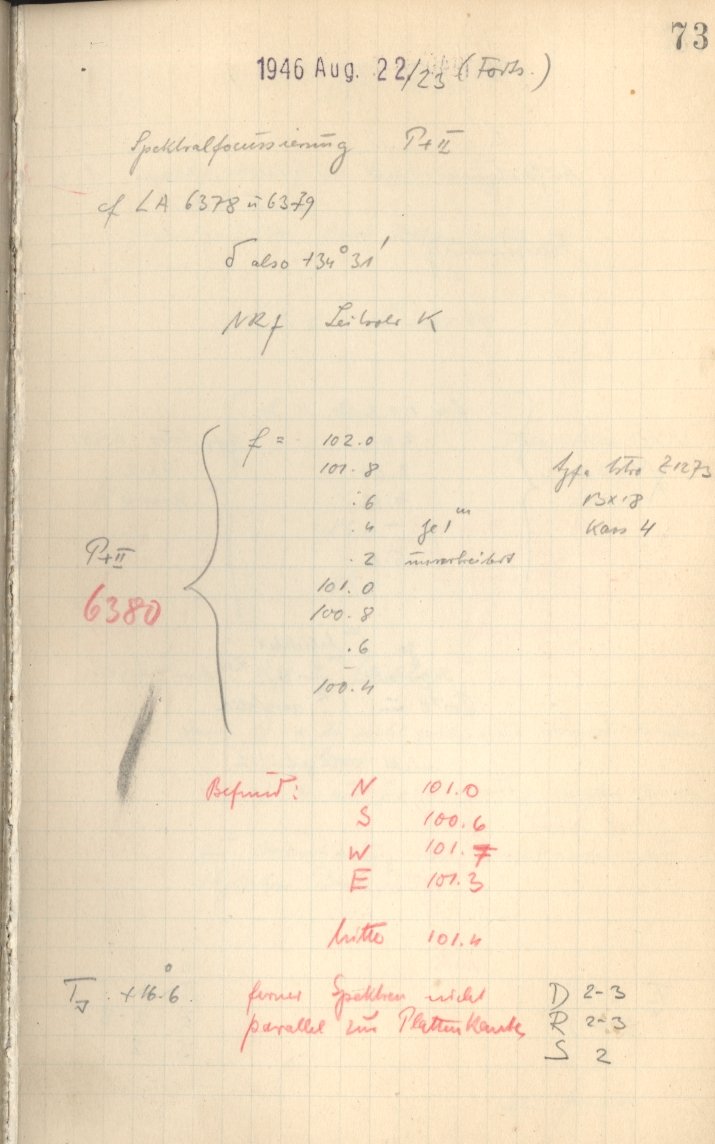 73
1946 Aug. 22/23 (Forts.)
Spektralfocussierung P+II
cf LA 6378 u 6379
δ also +34° 31'
NRf Leitrohr K
f = 102.0
101.8 Agfa Astro Z1273
.6 13x18
.4 je 1ᵐ Kass 4
P+II .2 unverbreitert
101.0
6380 100.8
.6
100.4
Befund: N 101.0
S 100.6
W 101.7
E 101.3
Mitte 101.4
T +16.6° ferner Spektren nicht D 2-3
parallel zur Plattenkante R 2-3
S 2